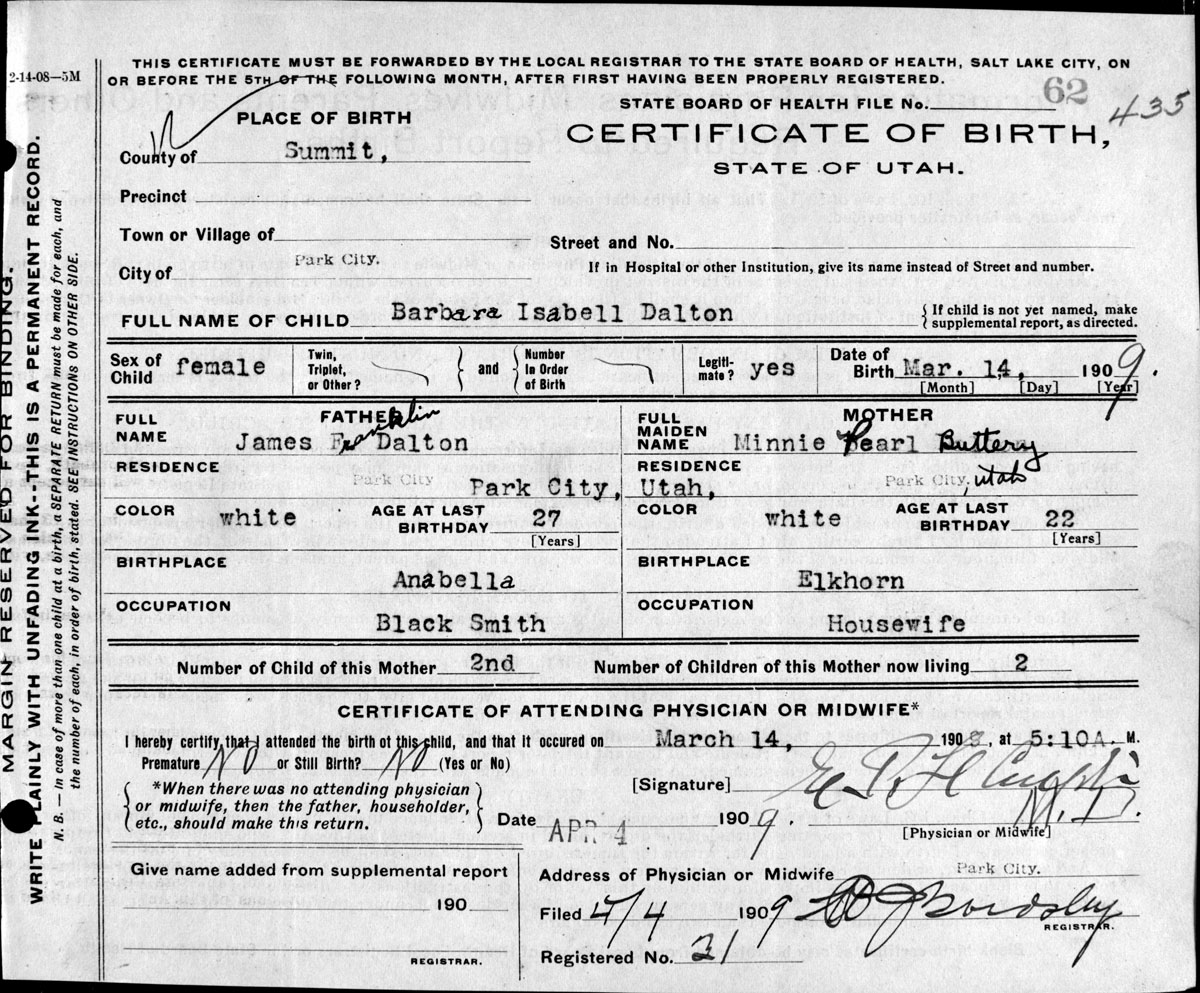 2-14-08—5M
THIS CERTIFICATE MUST BE FORWARDED BY THE LOCAL REGISTRAR TO THE STATE BOARD OF HEALTH, SALT LAKE CITY, ON
OR BEFORE THE 5TH OF THE FOLLOWING MONTH, AFTER FIRST HAVING BEEN PROPERLY REGISTERED.
STATE BOARD OF HEALTH FILE No. 62 435
PLACE OF BIRTH
CERTIFICATE OF BIRTH,
STATE OF UTAH.
County of Summit,
Precinct
Town or Village of
Street and No.
City of Park City.
If in Hospital or other Institution, give its name instead of Street and number.
FULL NAME OF CHILD Barbara Isabell Dalton
If child is not yet named, make
supplemental report, as directed.
Sex of Child female Twin, Triplet, or Other? and Number In Order of Birth Legiti-mate? yes Date of Birth Mar. 14, 1909.
[Month] [Day] [Year]
FATHER
FULL NAME James Franklin Dalton
MOTHER
FULL MAIDEN NAME Minnie Pearl Buttery
RESIDENCE Park City Park City, Utah,
RESIDENCE Park City, Utah
COLOR white AGE AT LAST BIRTHDAY 27 [Years]
COLOR white AGE AT LAST BIRTHDAY 22 [Years]
BIRTHPLACE Anabella
BIRTHPLACE Elkhorn
OCCUPATION Black Smith
OCCUPATION Housewife
Number of Child of this Mother 2nd Number of Children of this Mother now living 2
CERTIFICATE OF ATTENDING PHYSICIAN OR MIDWIFE*
I hereby certify that I attended the birth of this child, and that it occured on March 14, 190 , at 5:10A. M.
Premature NO or Still Birth? NO (Yes or No)
[Signature] M.D.
*When there was no attending physician
or midwife, then the father, householder,
etc., should make this return.
Date APR 4 1909.
[Physician or Midwife]
Give name added from supplemental report
190
REGISTRAR.
Address of Physician or Midwife Park City.
Filed 4/4 1909
REGISTRAR.
Registered No. 31
MARGIN RESERVED FOR BINDING.
WRITE PLAINLY WITH UNFADING INK--THIS IS A PERMANENT RECORD.
N. B. — In case of more than one child at a birth, a SEPARATE RETURN must be made for each, and
the number of each, in order of birth, stated. SEE INSTRUCTIONS ON OTHER SIDE.